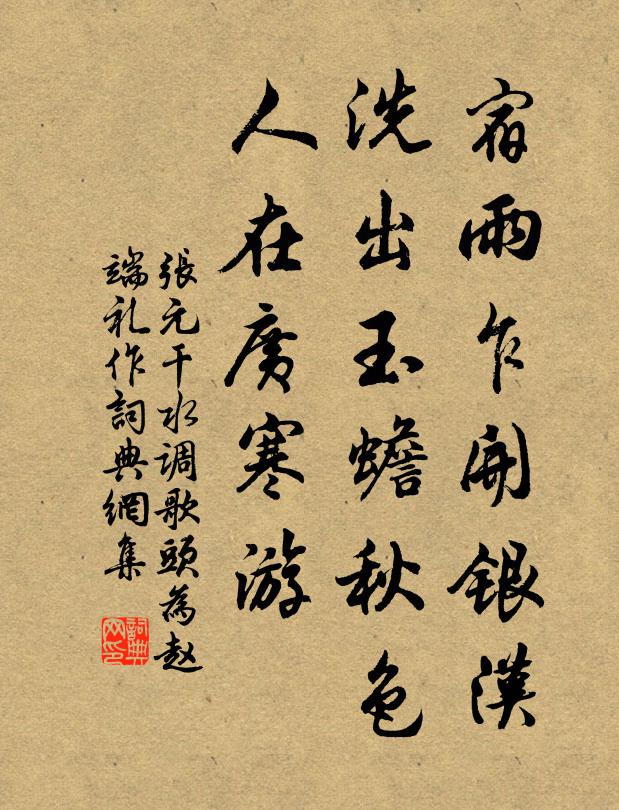 宿雨乍開銀漢
洗出玉蟾秋色
人在廣寒游
張元干水调歌頭為赵
端礼作詞典網集
詞典网印